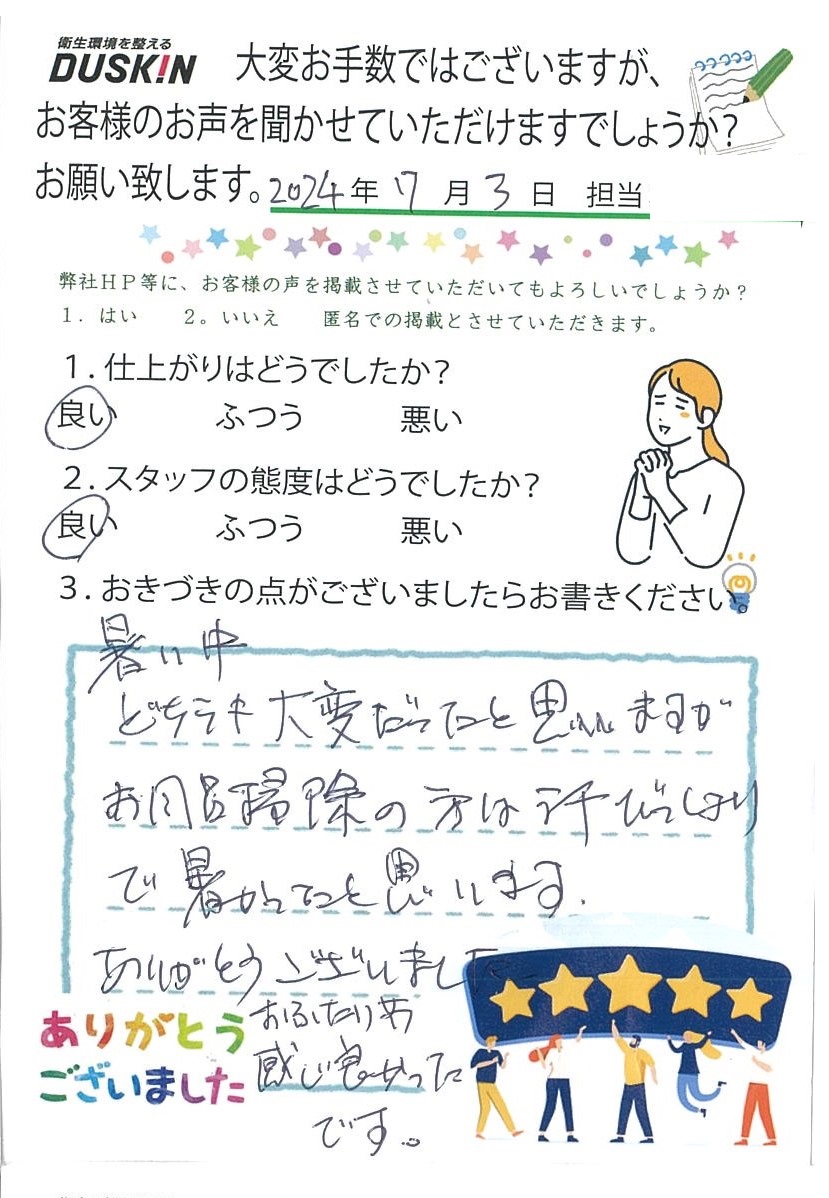 衛生環境を整える
DUSKIN
大変お手数ではございますが、
お客様のお声を聞かせていただけますでしょうか?
お願い致します。2024年 7月 3日 担当
弊社HP等に、お客様の声を掲載させていただいてもよろしいでしょうか?
1. はい 2。いいえ 匿名での掲載とさせていただきます。
1. 仕上がりはどうでしたか?
良い ふつう 悪い
2. スタッフの態度はどうでしたか?
良い ふつう 悪い
3. おきづきの点がございましたらお書きください。
暑い中
どちらも大変だったと思いますが
お風呂掃除の方は汗びっしょり
で暑かったと思います.
ありがとうございました
おふたり共
感じ良かった
です。
ありがとう
ございました